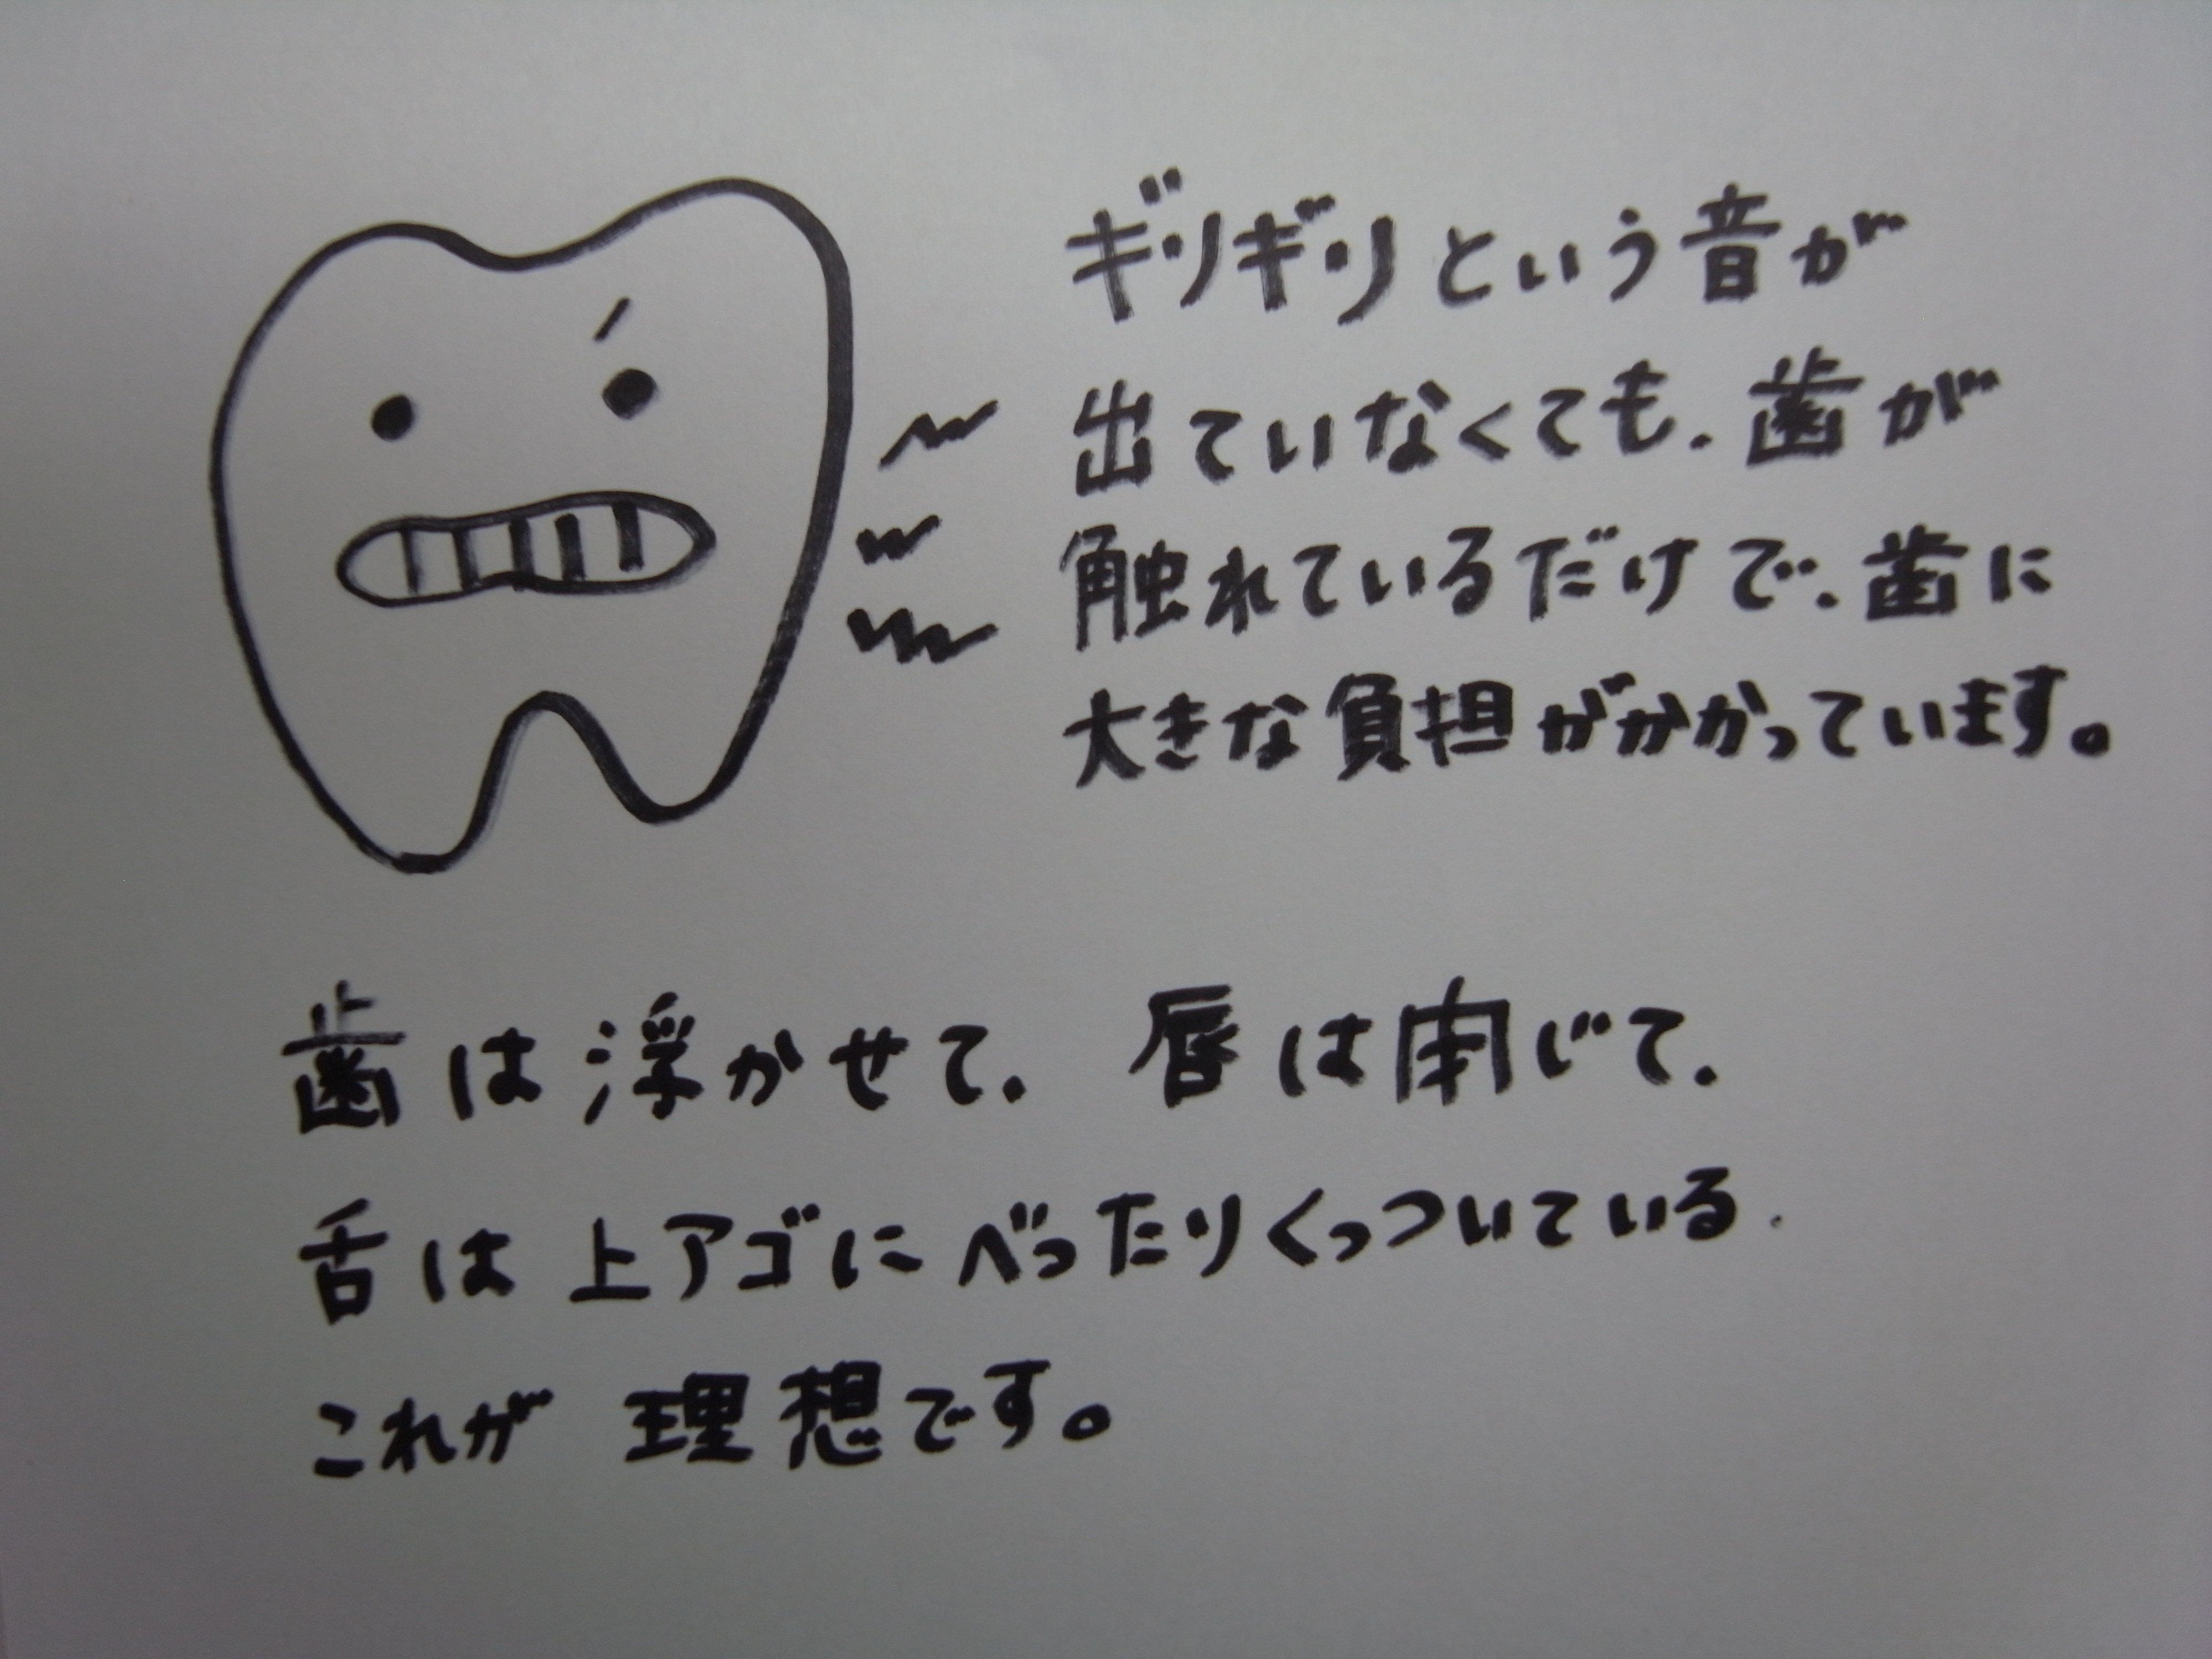 ギリギリという音が
出ていなくても、歯が
触れているだけで、歯に
大きな負担がかかっています。
歯は浮かせて、唇は閉じて、
舌は上アゴにべったりくっついている、
これが理想です。